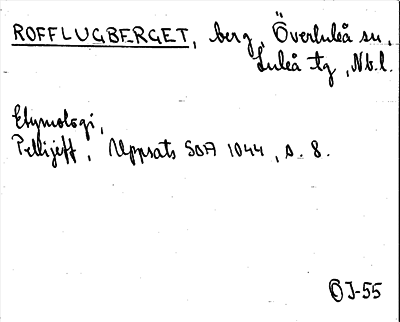 ROFFLUGBERGET, berg, Överluleå sn,
Luleå tg, Nb.l.
Etymologi,
Pellijeff, Uppsats SOA 1044, s. 8.
ÖJ-55